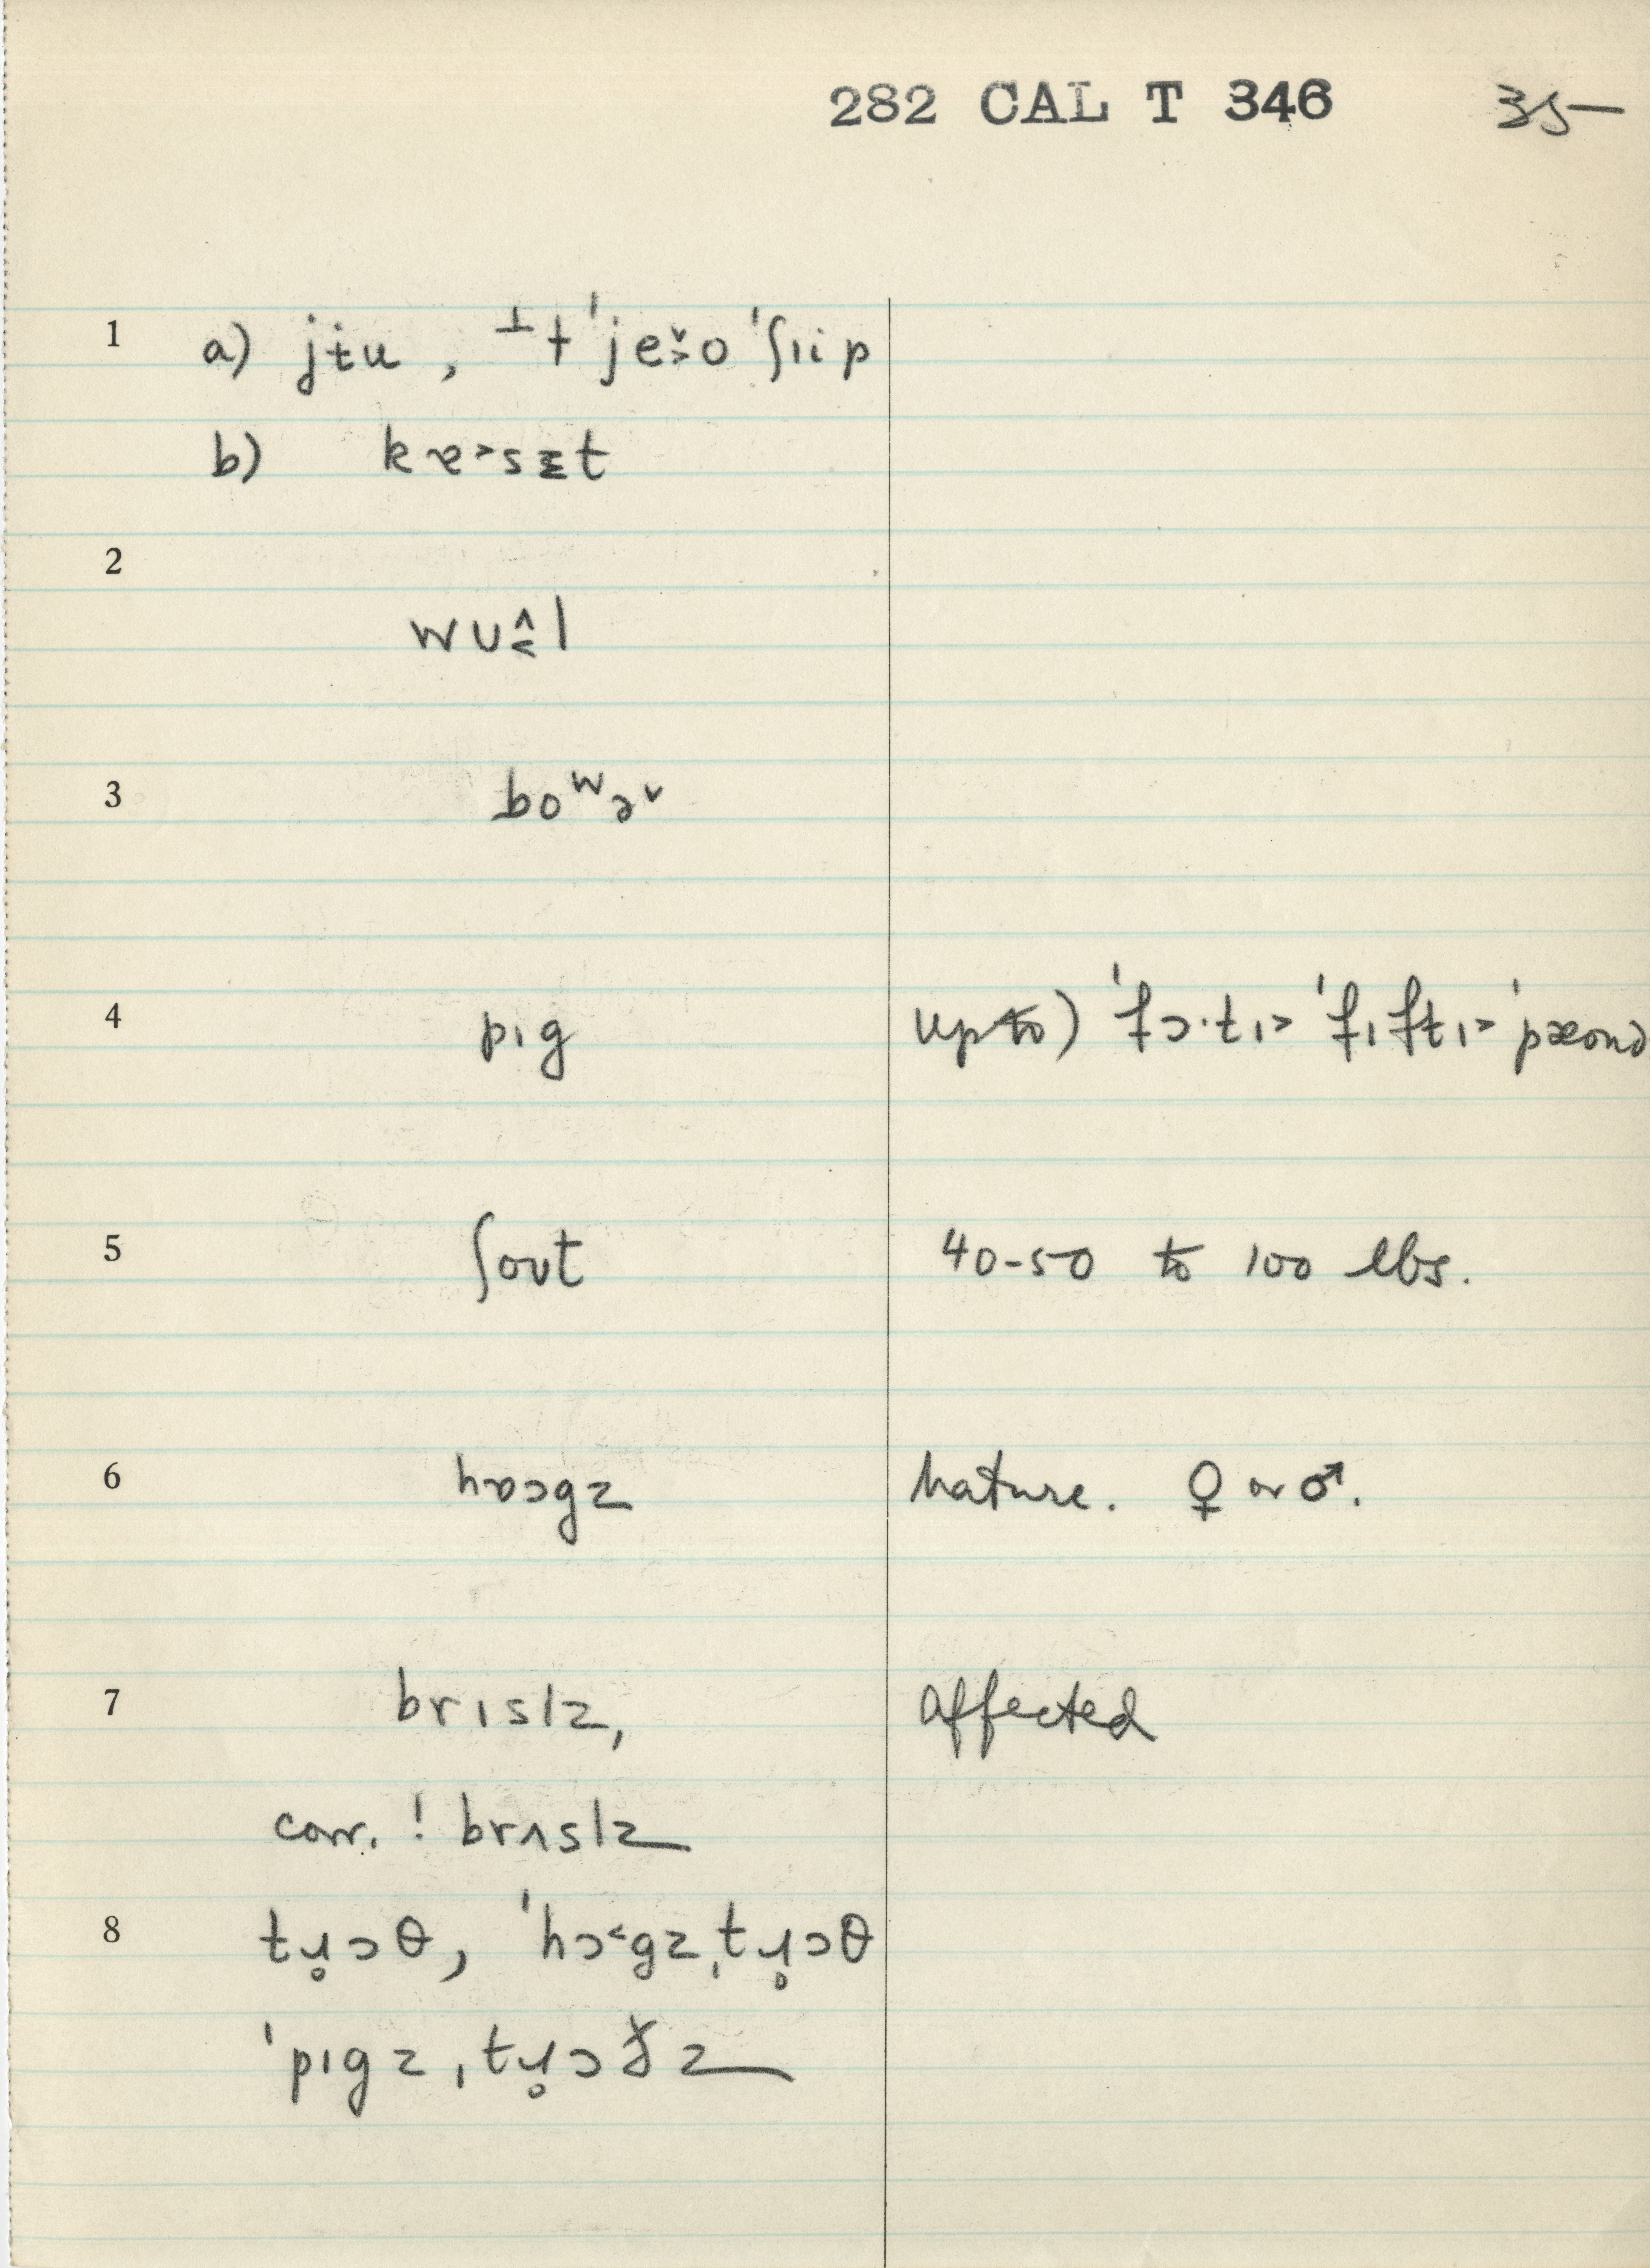 282 CAL T 346 35
1 a) jɨu , ⊥ɨ 'je̬˃o 'ʃɪip
b) kɐ˃sɛt
2
wʊ^˂l
3 boʷə˅
4 pɪg up to) 'fɔ·tɪ˃ 'fɪftɪ˃ 'pæond
5 ʃoʊt 40-50 to 100 lbs.
6 hɒɔgz Mature. ♀ or ♂.
7 brɪslz, affected
corr. ! brʌslz
8 tɹ̥ɔθ, 'hɔ˂gz ˌtɹ̥ɔθ
'pɪgz ˌtɹ̥ɔðz